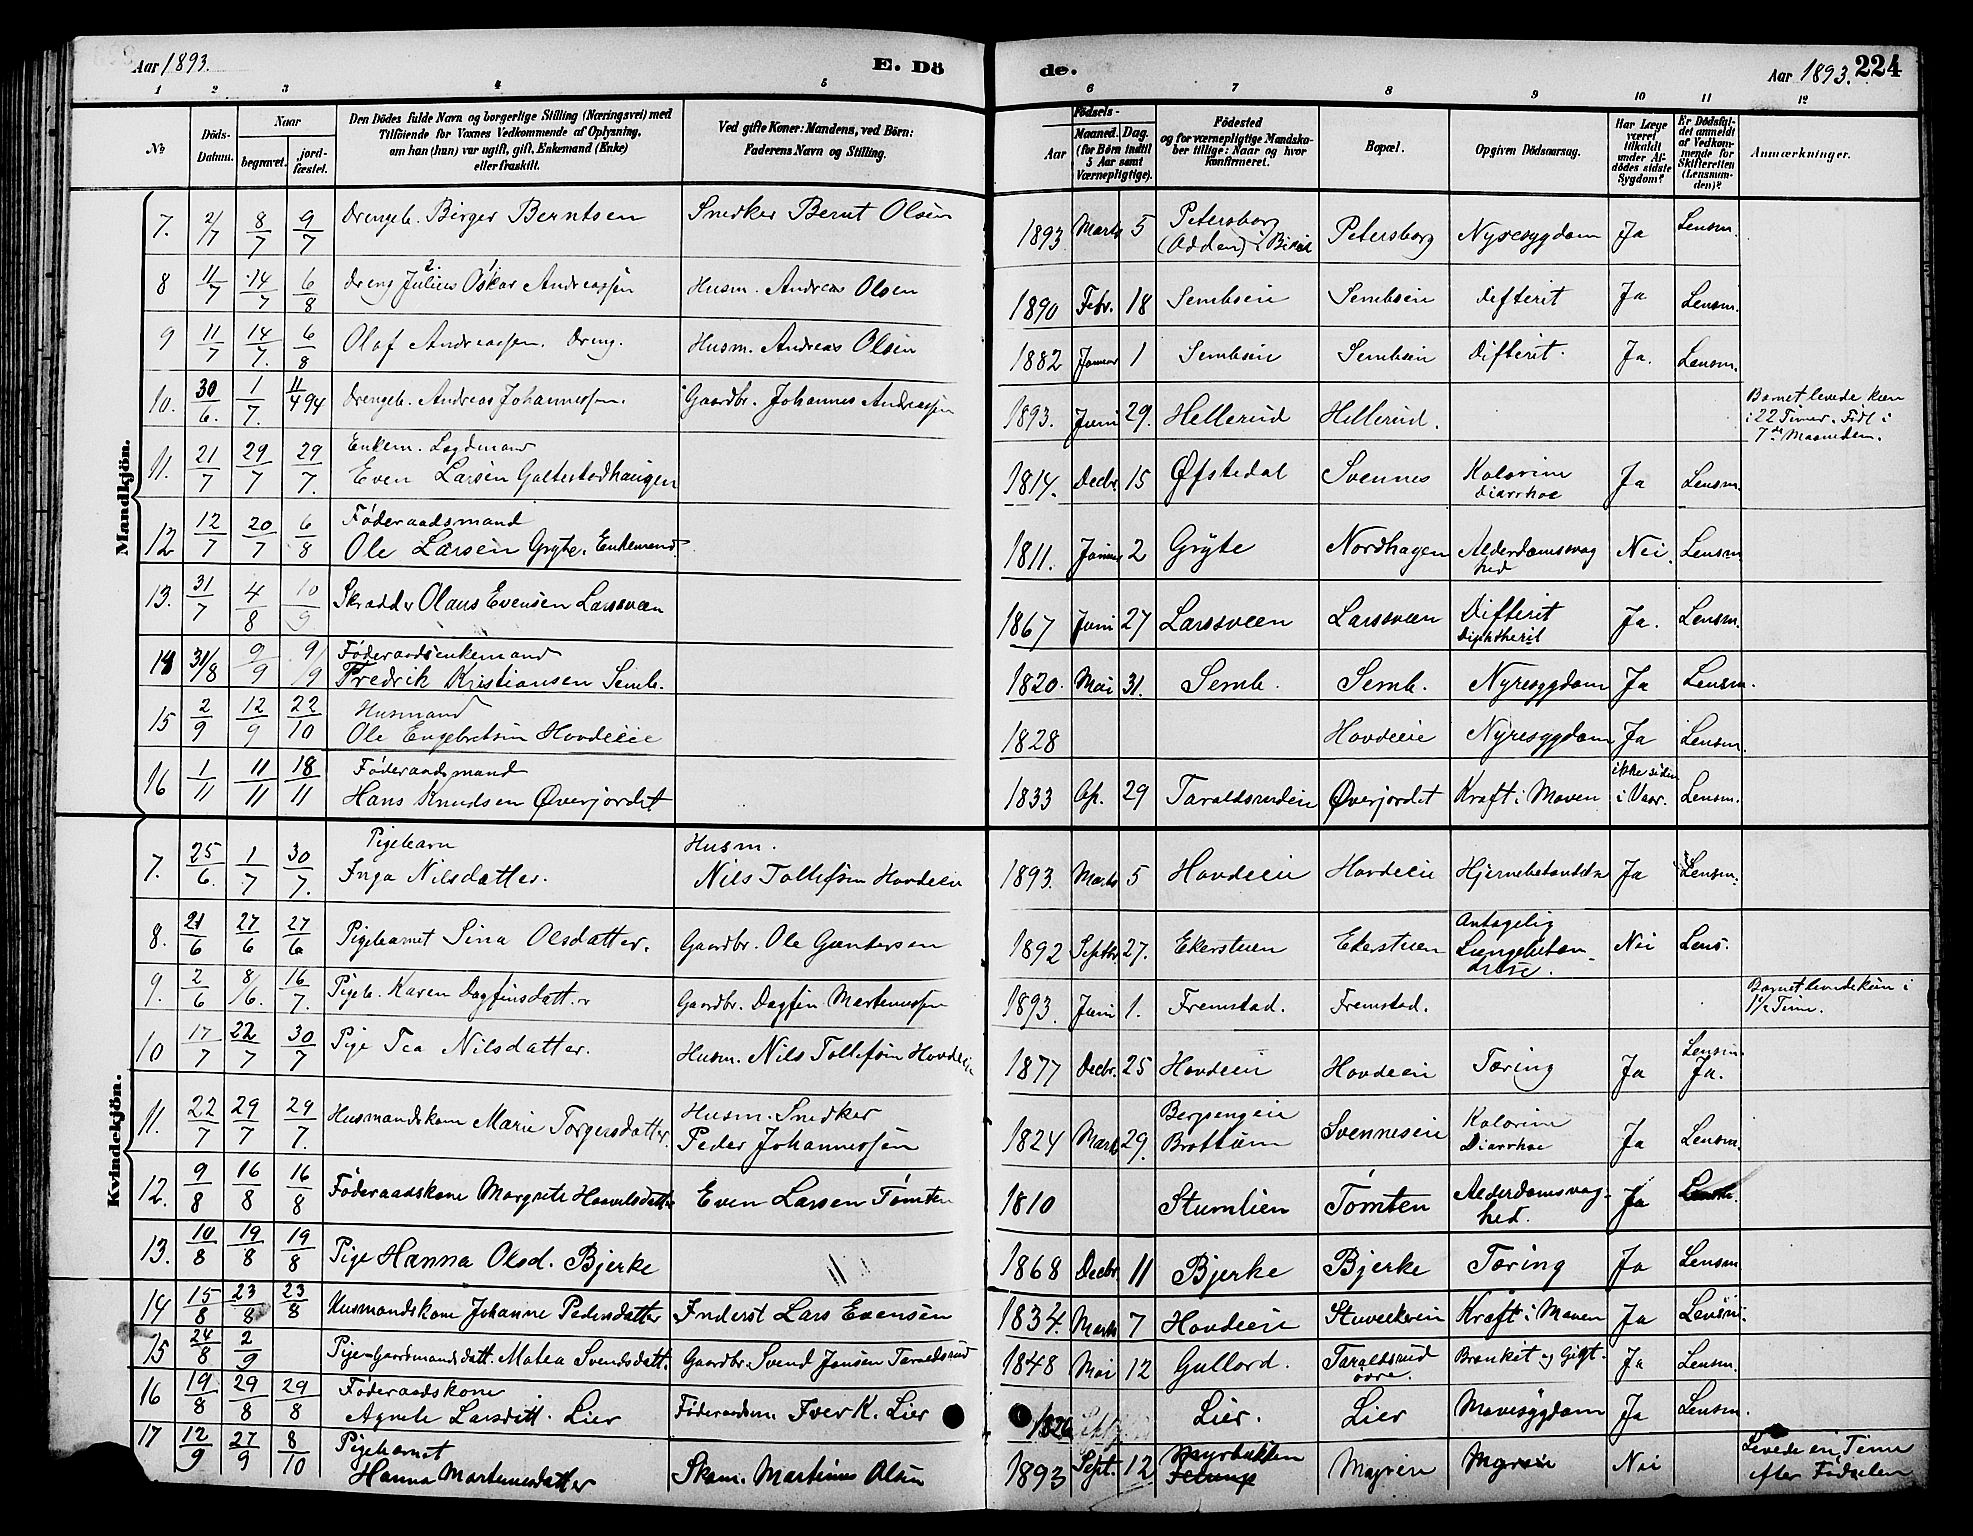 Aar 1893.
E. Dö
de.
Aar 1893. 224
1 2 3 4 5 6 7 8 9 10 11 12
No
Döds-Datum.
Naar
begravet.
jord-fæstet.
Den Dödes fulde Navn og borgerlige Stilling (Næringsvei) med
Tilföiende for Voxnes Vedkommende af Oplysning,
om han (hun) var ugift, gift, Enkemand (Enke)
eller fraskilt.
Ved gifte Koner: Mandens, ved Börn:
Faderens Navn og Stilling.
Födsels-
Aar
Maaned. Dag.
(for Börn indtil
5 Aar samt
Værnepligtige).
Födested
og for værnepligtige Mandska-
ber tillige: Naar og hvor
konfirmeret.
Bopæl.
Opgiven Dödsaarsag.
Har Læge
været
tilkaldt
under Af-
dödes sidste
Sygdom?
Er Dödsfal-
det anmeldt
af Vedkom-
mende for
Skifteretten
(Lensman-
den)?
Anmærkninger.
Mandkjön.
7. 2/7 8/7 9/7 Drengeb. Birger Berntsen Snedker Bernt Olsen 1893 Marts 5 Petersborg (Odden) i Petersborg Nyresygdom Ja Lensm.
8 11/7 14/7 6/8 Dreng Julius Oskar Andreassen Husm. Andreas Olsen 1890 Febr. 18 Sembseie Sembseie Difterit Ja Lensm.
9 11/7 14/7. 6/8 Olaf Andreassen. Dreng. Husm. Andreas Olsen 1882 Januar 1 Sembseie Sembseie Difterit. Ja. Lensm.
10. 30/6. 1/7. 11/4 94 Drengeb. Andreas Johannessen. Gaardbr. Johannes Andreassen 1893. Juni 29. Hellerud Hellerud. Barnet levede kun i 22 Timer. Födt i 7de Maaneden.
11. 21/7 29/7 29/7. Enkem. Lægdmand Even Larsen Galtestadhaugen 1814. Decbr. 15 Øfstedal Svennes Kolorine Diarrhoe Ja Lensm.
12 12/7 20/7 6/8 Föderaadsmand Ole Larsen Gryte. Enkemand 1811. Januar 2 Gryte Nordhagen Alderdomssvaghed Nei. Lensm
13. 31/7 4/8 10/9 Skrædder Olaus Evensen Larssveen 1867 Juni 27 Larssveen Larssveen Difterit Diphtherit Ja. Lensm.
14 31/8 9/9 9/9 Föderaadsenkemand Fredrik Kristiansen Semb. 1820. Mai 31. Semb. Semb. Nyresygdom Ja Lensm.
15 2/9 12/9 22/10 Husmand Ole Engebretsen Hovdeeie 1828 Hovdeeie Nyresygdom Ja Lensm.
16 1/11 11/11 18/11 Föderaadsmand Hans Knudsen Øverjordet 1833 Ap. 29 Taraldsrudeie Øverjordet Kræft i Maven ikke siden i Vaar. Lensm.
Kvindekjön.
7. 25/6. 1/7 30/7. Pigebarn Inga Nilsdatter. Husm. Nils Tollefsen Hovdeeie 1893. Marts 5 Hovdeeie Hovdeeie Hjernebetændelse Ja Lensm.
8. 21/6 27/6 27/6 Pigebarnet Sina Olsdatter. Gaardbr. Ole Gundersen 1892 Septbr. 27. Ekerstuen Ekerstuen Antagelig Lungebetændelse. Nei Lens.
9. 2/6 8/6. 16/7. Pigeb. Karen Dagfinsdatter Gaardbr. Dagfin Martinussen 1893. Juni 1. Fremstad. Fremstad. Barnet levede kun i 1 1/2 Time.
10 17/7 22/7 30/7 Pige Tea Nilsdatter. Husm. Nils Tollefsen Hovdeeie 1877 Decbr. 25 Hovdeeie Hovdeeie Tæring Ja Lensm. Ja.
11. 22/7 29/7 29/7. Husmandskone Marie Torgersdatter. Husm. Snedker Peder Johannessen 1824 Marts 29. Bergsengeie Brøttum Svenneseie Kolorine Diarrhoe Ja Lensm.
12. 9/8 16/8 16/8 Föderaadskone Margrete Haavelsdatter Even Larsen Tömten 1810 Stumlien Tömten Alderdomssvaghed. Ja Lensm.
13. 10/8 19/8 19/8 Pige Hanna Olsd. Bjerke " 1868 Decbr. 11 Bjerke Bjerke Tæring Ja Lensm
14 15/8 23/8 23/8 Husmandskone Johanne Pedersdatter Inderst Lars Evensen 1834. Marts 7 Hovdeeie Stuveekereie Kræft i Maven Ja Lensm.
15 24/8 2/9 Pige=Gaardmandsdatt. Matea Svendsdatt. Gaardbr. Svend Jonsen Taraldsrud 1848 Mai 12 Gullord. Taraldsrud övre. Bronkit og Gigt. Ja Lensm.
16 19/8 29/8 29/8 Föderaadskone Agnete Larsdtt. Lier Föderaadsm. Iver K. Lier 1826 Lier. Lier Mavesygdom Ja Lensm.
17 12/9 27/9 8/10 Pigebarnet Hanna Martinusdatter Skom. Martinus Olsen 1893 Sept. 12 Myrbakken Nei Levede en Time efter Födselen